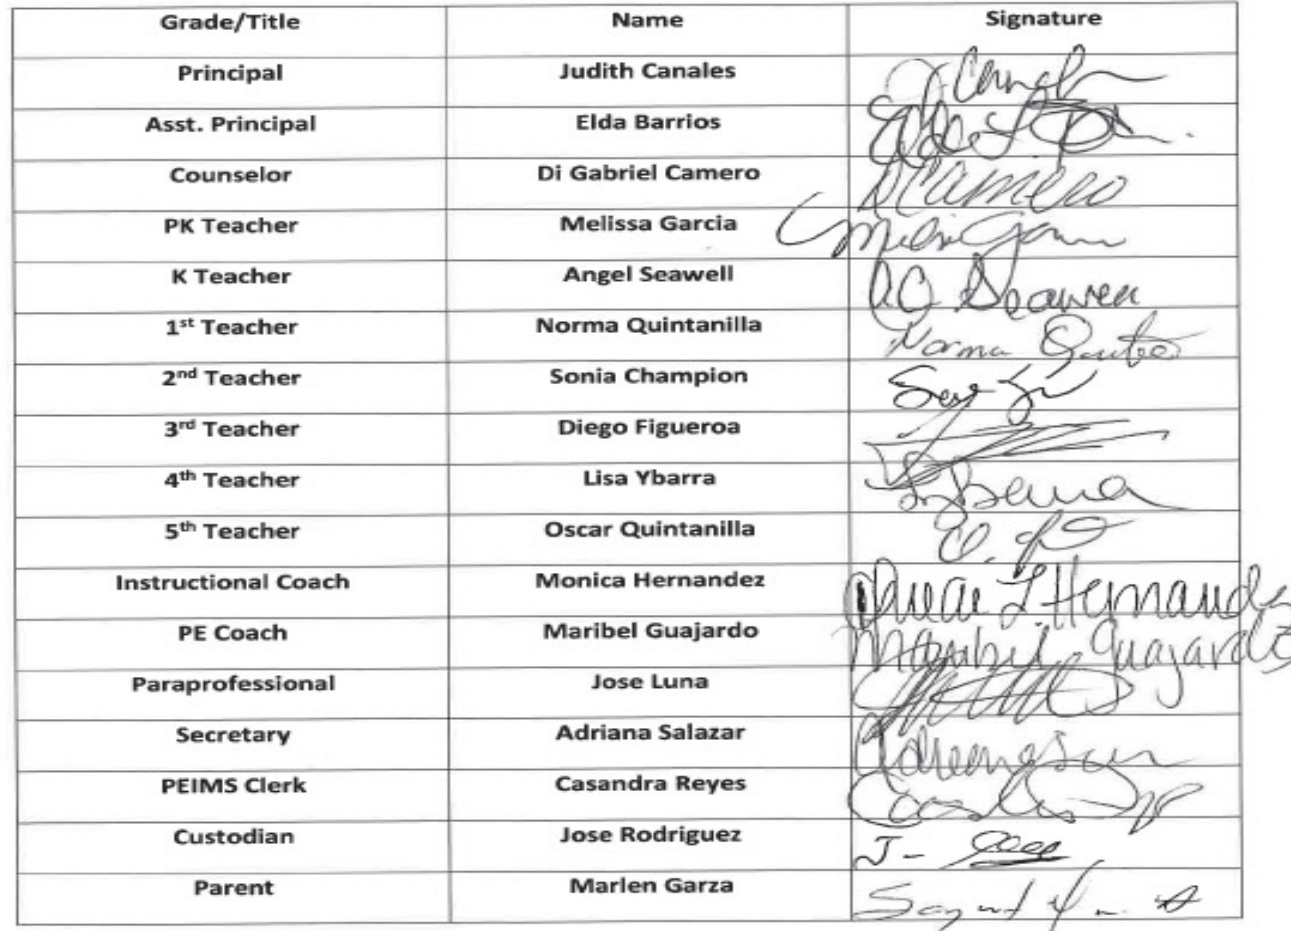 Grade/Title Name Signature
Principal Judith Canales J. Canales
Asst. Principal Elda Barrios
Counselor Di Gabriel Camero D Camero
PK Teacher Melissa Garcia
K Teacher Angel Seawell
1st Teacher Norma Quintanilla Norma
2nd Teacher Sonia Champion
3rd Teacher Diego Figueroa
4th Teacher Lisa Ybarra
5th Teacher Oscar Quintanilla
Instructional Coach Monica Hernandez
PE Coach Maribel Guajardo Maribel Guajardo
Paraprofessional Jose Luna
Secretary Adriana Salazar
PEIMS Clerk Casandra Reyes
Custodian Jose Rodriguez
Parent Marlen Garza